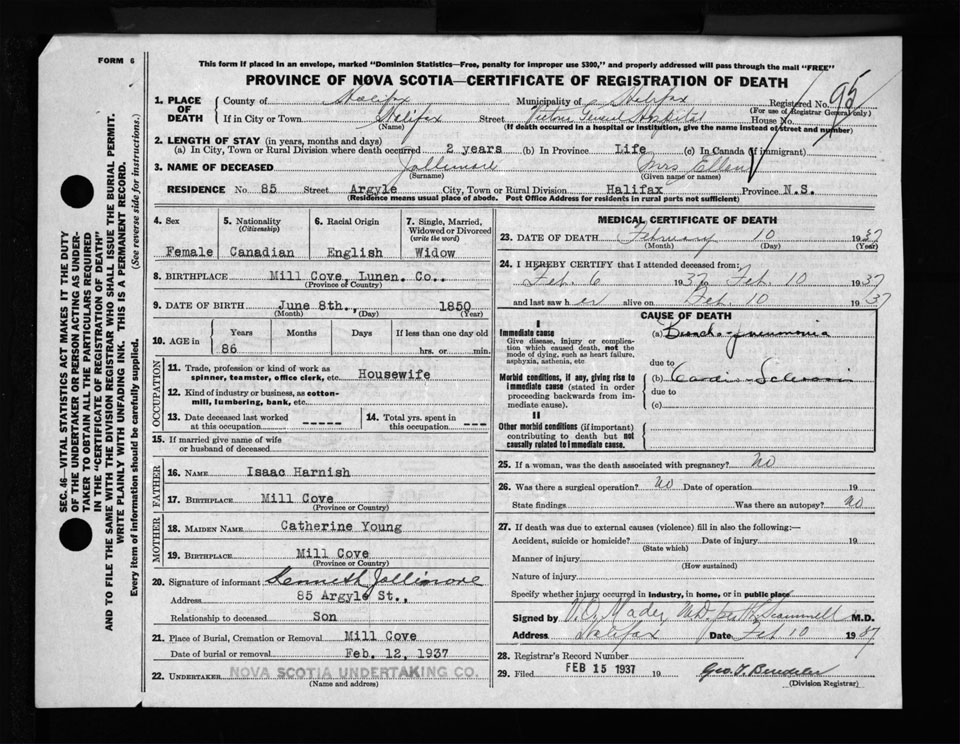 FORM 6
This form if placed in an envelope, marked "Dominion Statistics—Free, penalty for improper use $300," and properly addressed will pass through the mail "FREE"
PROVINCE OF NOVA SCOTIA—CERTIFICATE OF REGISTRATION OF DEATH
SEC. 46—VITAL STATISTICS ACT MAKES IT THE DUTY
OF THE UNDERTAKER OR PERSON ACTING AS UNDER-
TAKER TO OBTAIN ALL THE PARTICULARS REQUIRED
IN THE "CERTIFICATE OF REGISTRATION OF DEATH"
AND TO FILE THE SAME WITH THE DIVISION REGISTRAR WHO SHALL ISSUE THE BURIAL PERMIT.
WRITE PLAINLY WITH UNFADING INK. THIS IS A PERMANENT RECORD.
Every item of information should be carefully supplied. (See reverse side for instructions.)
1. PLACE OF DEATH
County of Halifax Municipality of Halifax Registered No. 95
(For use of Registrar General only)
If in City or Town Halifax Street Victoria General Hospital House No.
(Name) (If death occurred in a hospital or institution, give the name instead of street and number)
2. LENGTH OF STAY (in years, months and days)
(a) In City, Town or Rural Division where death occurred 2 years (b) In Province Life (c) In Canada (if immigrant)
3. NAME OF DECEASED Jollimore Mrs Ellen
(Surname) (Given name or names)
RESIDENCE No. 85 Street Argyle City, Town or Rural Division Halifax Province N.S.
(Residence means usual place of abode. Post Office Address for residents in rural parts not sufficient)
4. Sex 5. Nationality (Citizenship) 6. Racial Origin 7. Single, Married, Widowed or Divorced (write the word)
Female Canadian English Widow
8. BIRTHPLACE Mill Cove, Lunen. Co.,
(Province or Country)
9. DATE OF BIRTH June 8th., 1850
(Month) (Day) (Year)
10. AGE in Years Months Days If less than one day old
86 hrs. or min.
OCCUPATION
11. Trade, profession or kind of work as
spinner, teamster, office clerk, etc. Housewife
12. Kind of industry or business, as cotton-
mill, lumbering, bank, etc.
13. Date deceased last worked at this occupation ----- 14. Total yrs. spent in this occupation ---
15. If married give name of wife
or husband of deceased
FATHER
16. NAME Isaac Harnish
17. BIRTHPLACE Mill Cove
(Province or Country)
MOTHER
18. MAIDEN NAME Catherine Young
19. BIRTHPLACE Mill Cove
(Province or Country)
20. Signature of informant Kenneth Jollimore
Address 85 Argyle St.,
Relationship to deceased Son
21. Place of Burial, Cremation or Removal Mill Cove
Date of burial or removal Feb. 12, 1937
22. UNDERTAKER NOVA SCOTIA UNDERTAKING CO.
(Name and address)
MEDICAL CERTIFICATE OF DEATH
23. DATE OF DEATH February 10 1937
(Month) (Day) (Year)
24. I HEREBY CERTIFY that I attended deceased from:
Feb. 6 1937 to Feb. 10 1937
and last saw her alive on Feb. 10 1937
CAUSE OF DEATH
I
Immediate cause (a) Broncho-pneumonia
Give disease, injury or complica-
tion which caused death, not the
mode of dying, such as heart failure,
asphyxia, asthenia, etc
due to
Morbid conditions, if any, giving rise to
immediate cause (stated in order
proceeding backwards from im-
mediate cause).
(b) Cardio-Sclerosis
due to
(c)
II
Other morbid conditions (if important)
contributing to death but not
causally related to immediate cause.
25. If a woman, was the death associated with pregnancy? No
26. Was there a surgical operation? No Date of operation 19
State findings Was there an autopsy? No
27. If death was due to external causes (violence) fill in also the following:—
Accident, suicide or homicide? Date of injury 19
(State which)
Manner of injury
(How sustained)
Nature of injury
Specify whether injury occurred in industry, in home, or in public place
Signed by V.O. Mader M.D. M.D.
Address Halifax Date Feb 10 1937
28. Registrar's Record Number
29. Filed FEB 15 1937 19
(Division Registrar)